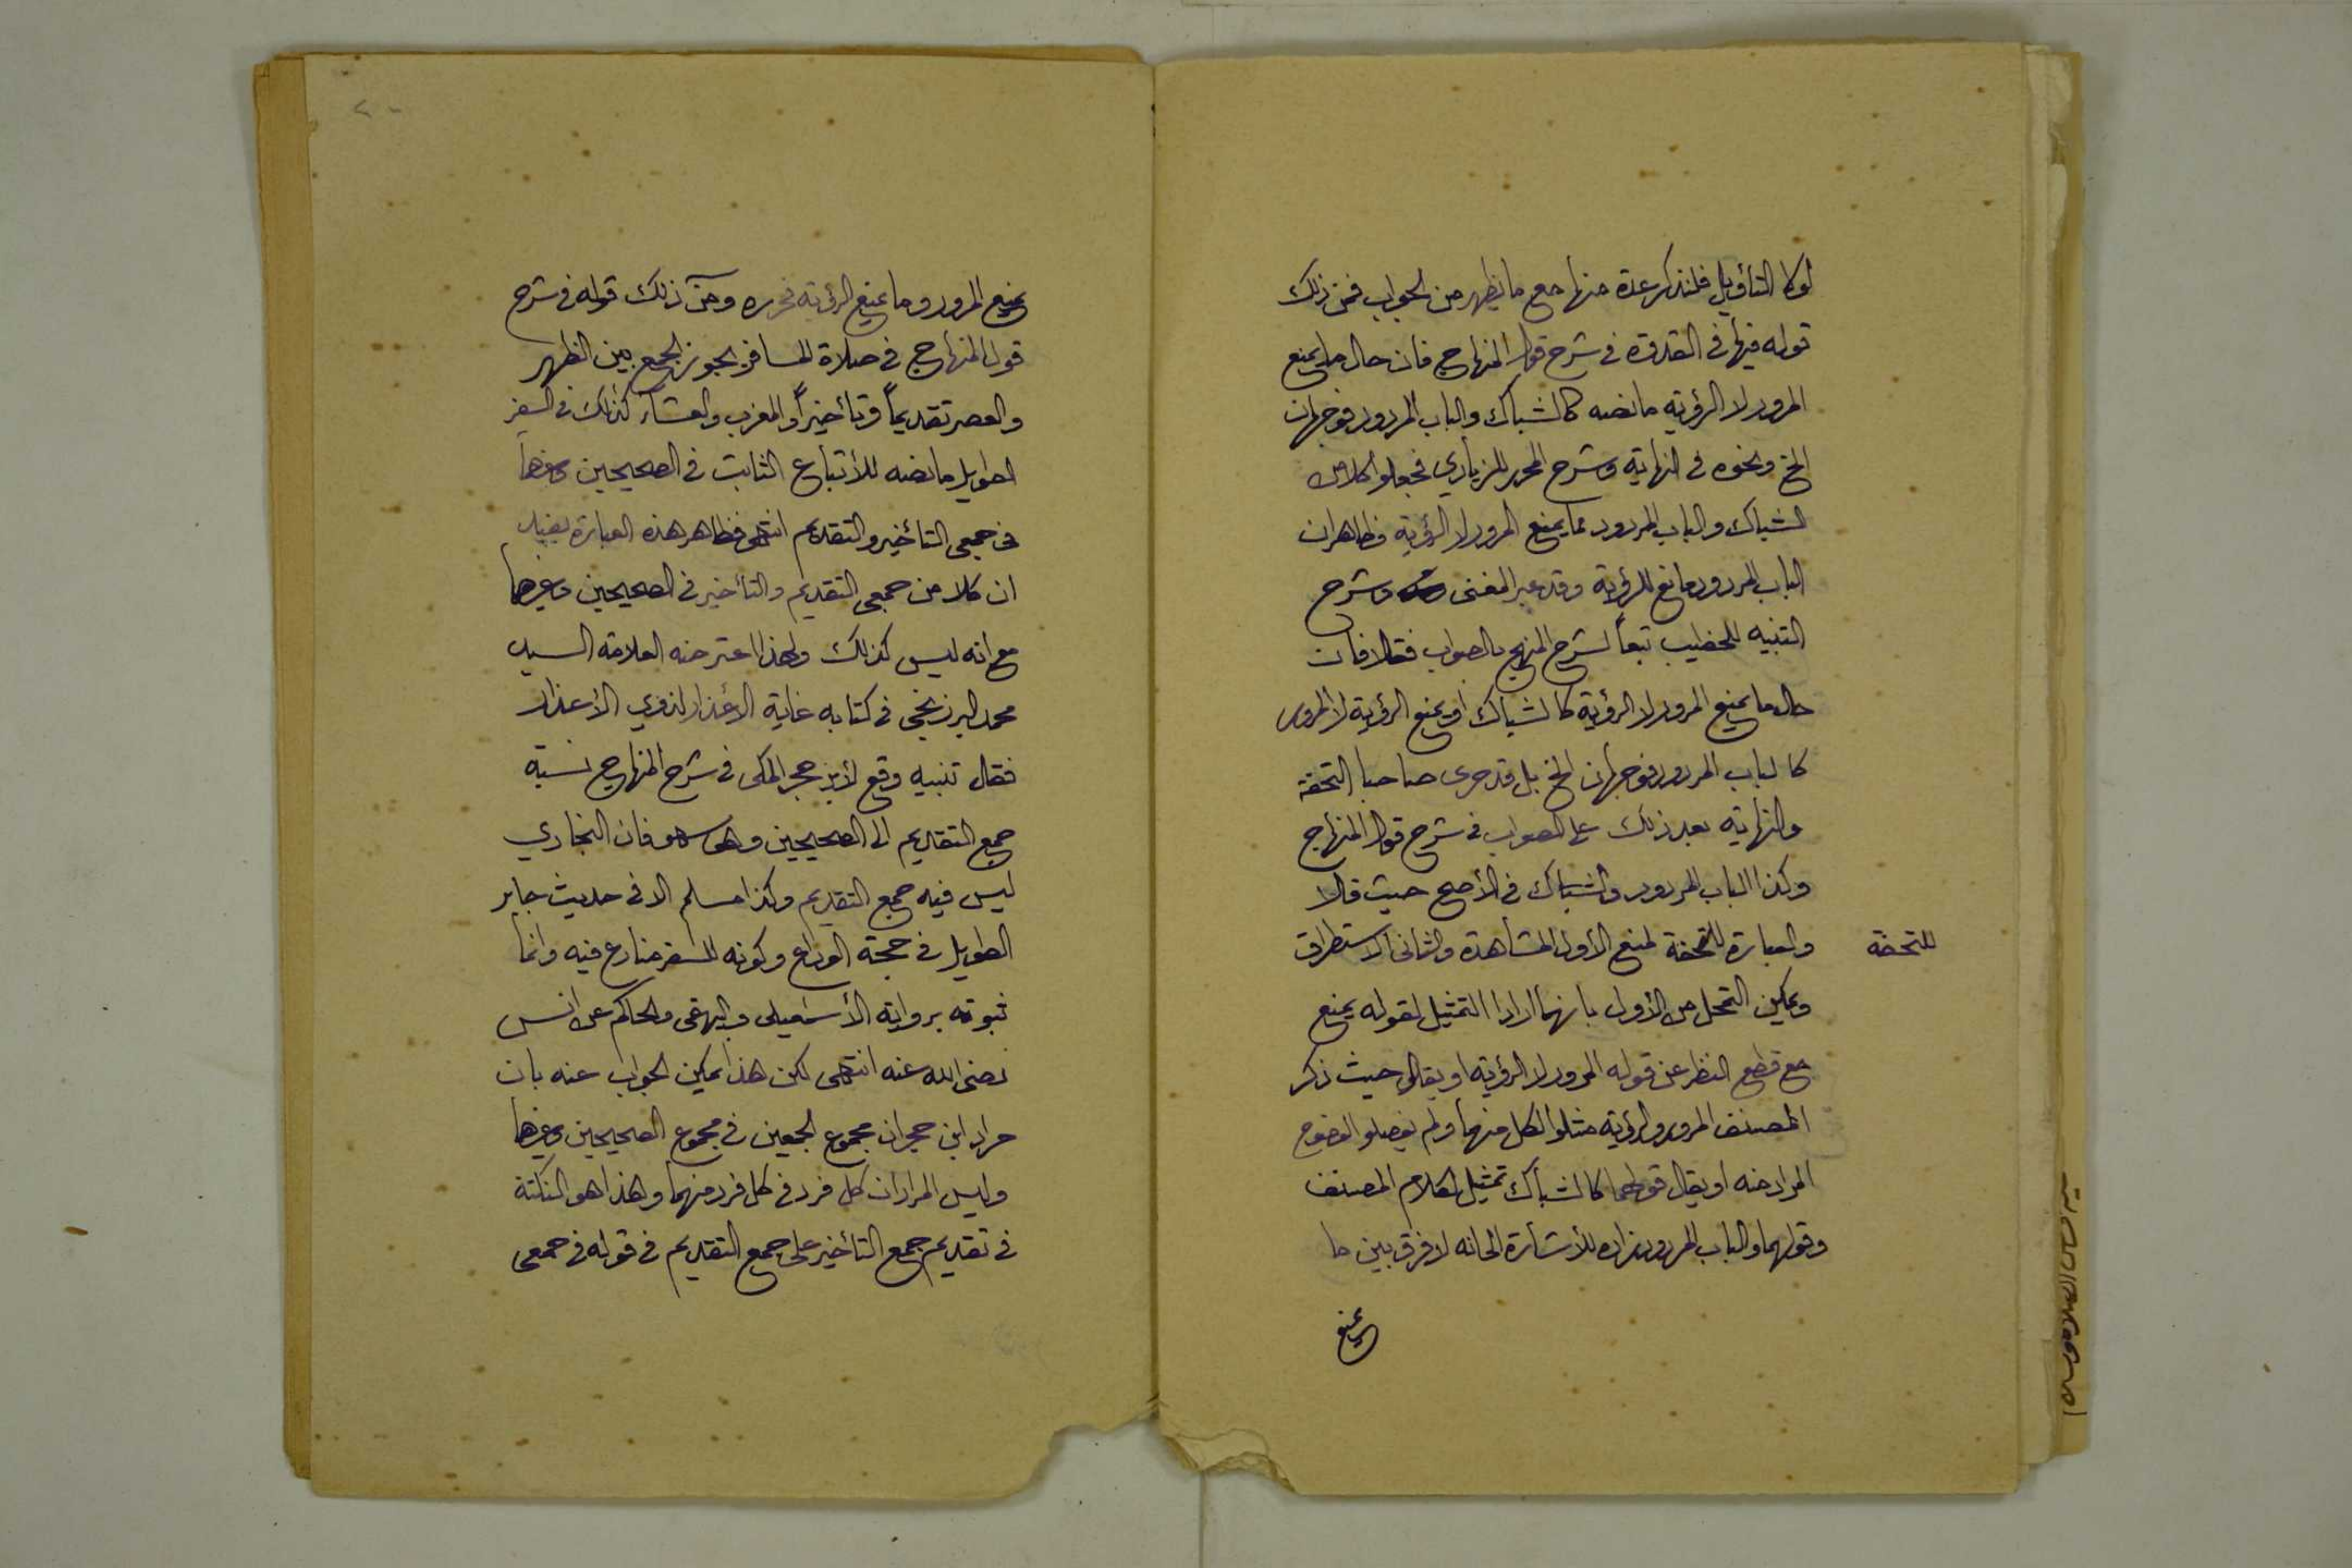 لولا التأويل فلنذكر عدة منها مع ما يظهر من الجواب فمن ذلك
قوله فيها في القدوة في شرح قول المنهاج فان حال ما يمنع
المرور لا الرؤية ما نصه كالشباك والباب المردود فوجهان
الخ ونحوه في النهاية وشرح المحرر للزيادي فجعلوا كلا من
الشباك والباب المردود مما يمنع المرور لا الرؤية وظاهر ان
الباب المردود مانع للرؤية وقد عبر المغنى وشرح
التنبيه للخطيب تبعاً لشرح المنهج بالصواب فقالا فان
حال ما يمنع المرور لا الرؤية كالشباك او يمنع الرؤية لا المرور
كالباب المردود فوجهان الخ بل قد جرى صاحبا التحفة
والنهاية بعد ذلك على الصواب في شرح قول المنهاج
وكذا الباب المردود والشباك في الأصح حيث قالا
والعبارة للتحفة لمنع الأول المشاهدة والثاني الاستطراق
للتحفة
ويمكن التحمل من الأول بانهما ارادا التمثيل لقوله يمنع
مع قطع النظر عن قوله المرور لا الرؤية او يقال حيث ذكر
المصنف المرور والرؤية مثلوا لكل منهما ولم يفصلوا لوضوح
المراد منه او يقال قولهما كالشباك تمثيل لكلام المصنف
وقولهما والباب المردود زاده للأشارة الى انه لا فرق بين ما
يمنع
يمنع المرور وما يمنع الرؤية فحرره ومن ذلك قوله في شرح
قول المنهاج في صلاة المسافر يجوز الجمع بين الظهر
والعصر تقديماً وتأخيراً والمغرب والعشاء كذلك في السفر
الطويل ما نصه للأتباع الثابت في الصحيحين وغيرهما
في جمعي التأخير والتقديم انتهى فظاهر هذه العبارة يفيد
ان كلا من جمعي التقديم والتأخير في الصحيحين وغيرهما
مع انه ليس كذلك ولهذا اعترضه العلامة السيد
محمد البرزنجي في كتابه غاية الأعذار لذوي الأعذار
فقال تنبيه وقع لأبن حجر المكي في شرح المنهاج نسبة
جمع التقديم الى الصحيحين وهو سهو فان البخاري
ليس فيه جمع التقديم وكذا مسلم الا في حديث جابر
الطويل في حجة الوداع وكونه للسفر منازع فيه وانما
ثبوته برواية الأسمعيلي والبيهقي والحاكم عن انس
رضى الله عنه انتهى لكن هذا يمكن الجواب عنه بان
مراد ابن حجر ان مجموع الجمعين في مجموع الصحيحين وغيرهما
وليس المراد ان كل فرد في كل فرد منهما وهذا هو النكتة
في تقديم جمع التأخير على جمع التقديم في قوله في جمعي